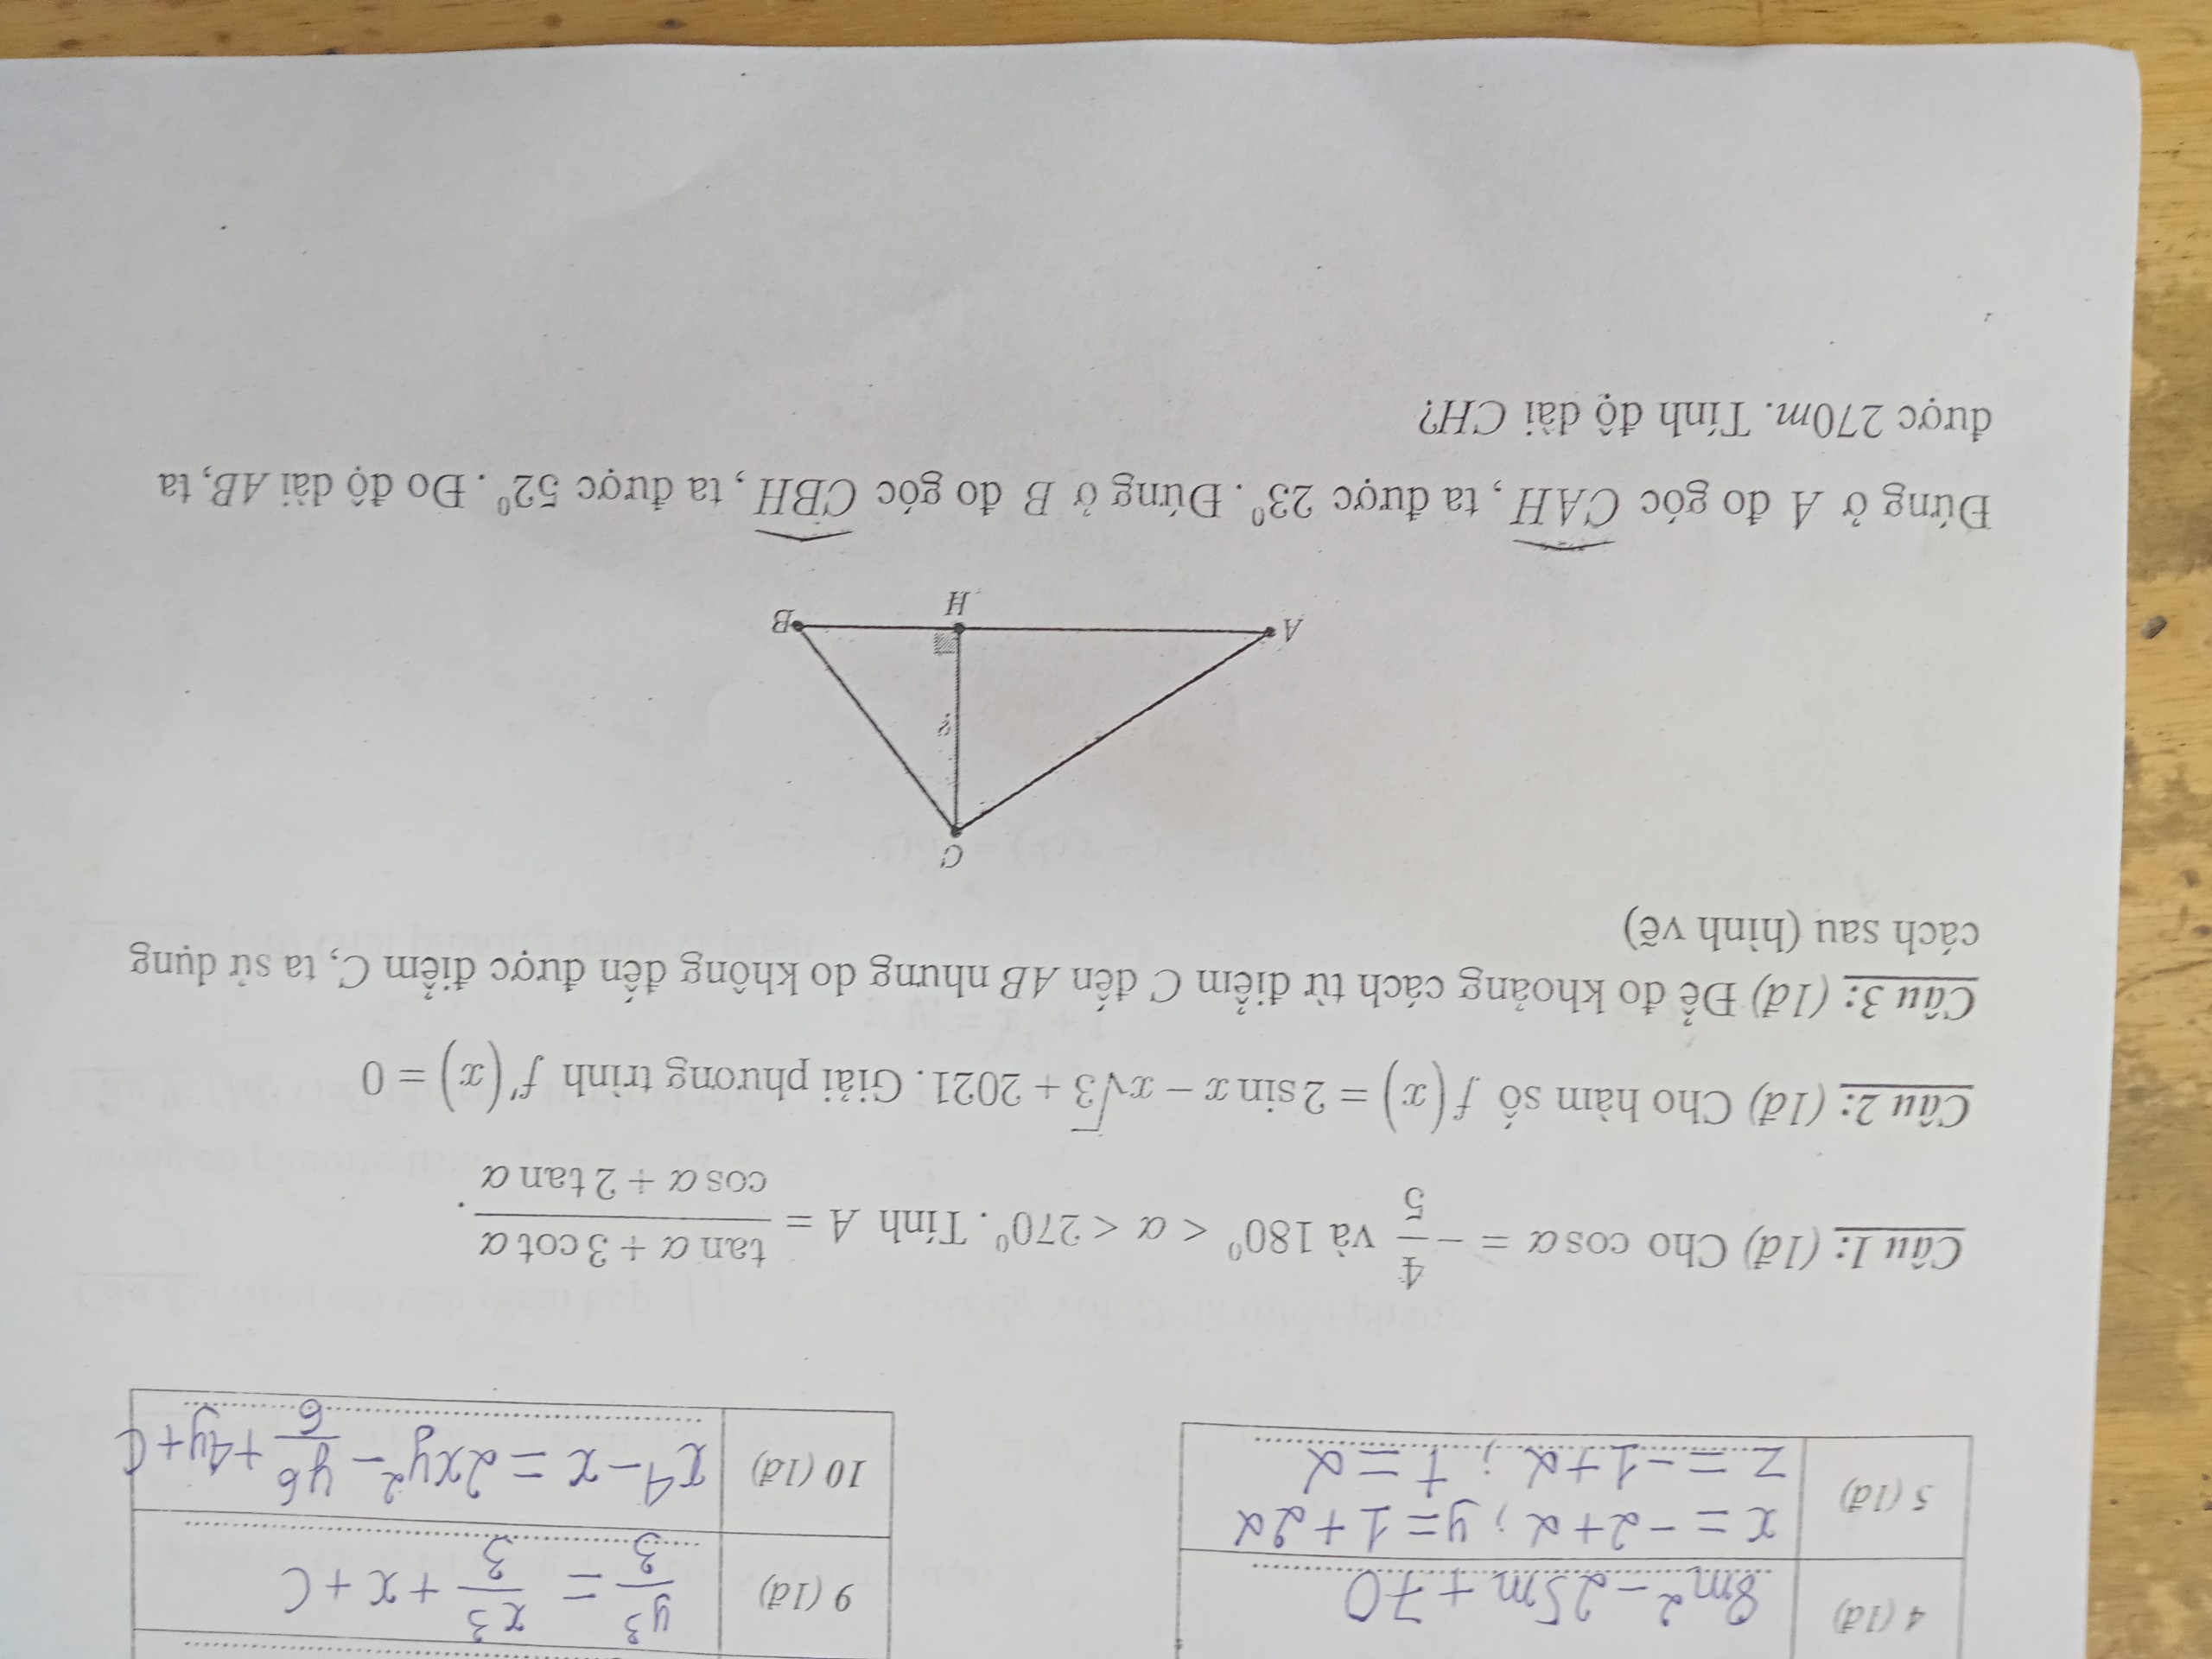 4 (1đ) 8m² – 25m + 70
5 (1đ) x = –2 + α ; y = 1 + 2α
z = –1 + α ; t = α
9 (1đ) y³/3 = x³/3 + x + C
10 (1đ) x⁴ – x = 2xy² – y⁶/6 + 4y + C
Câu 1: (1đ) Cho cos α = –4/5 và 180⁰ < α < 270⁰. Tính A = (tan α + 3 cot α)/(cos α + 2 tan α).
Câu 2: (1đ) Cho hàm số f(x) = 2 sin x – x√3 + 2021. Giải phương trình f'(x) = 0
Câu 3: (1đ) Để đo khoảng cách từ điểm C đến AB nhưng do không đến được điểm C, ta sử dụng
cách sau (hình vẽ)
C
?
A
B
H
Đứng ở A đo góc CAH, ta được 23⁰. Đứng ở B đo góc CBH, ta được 52⁰. Đo độ dài AB, ta
được 270m. Tính độ dài CH?